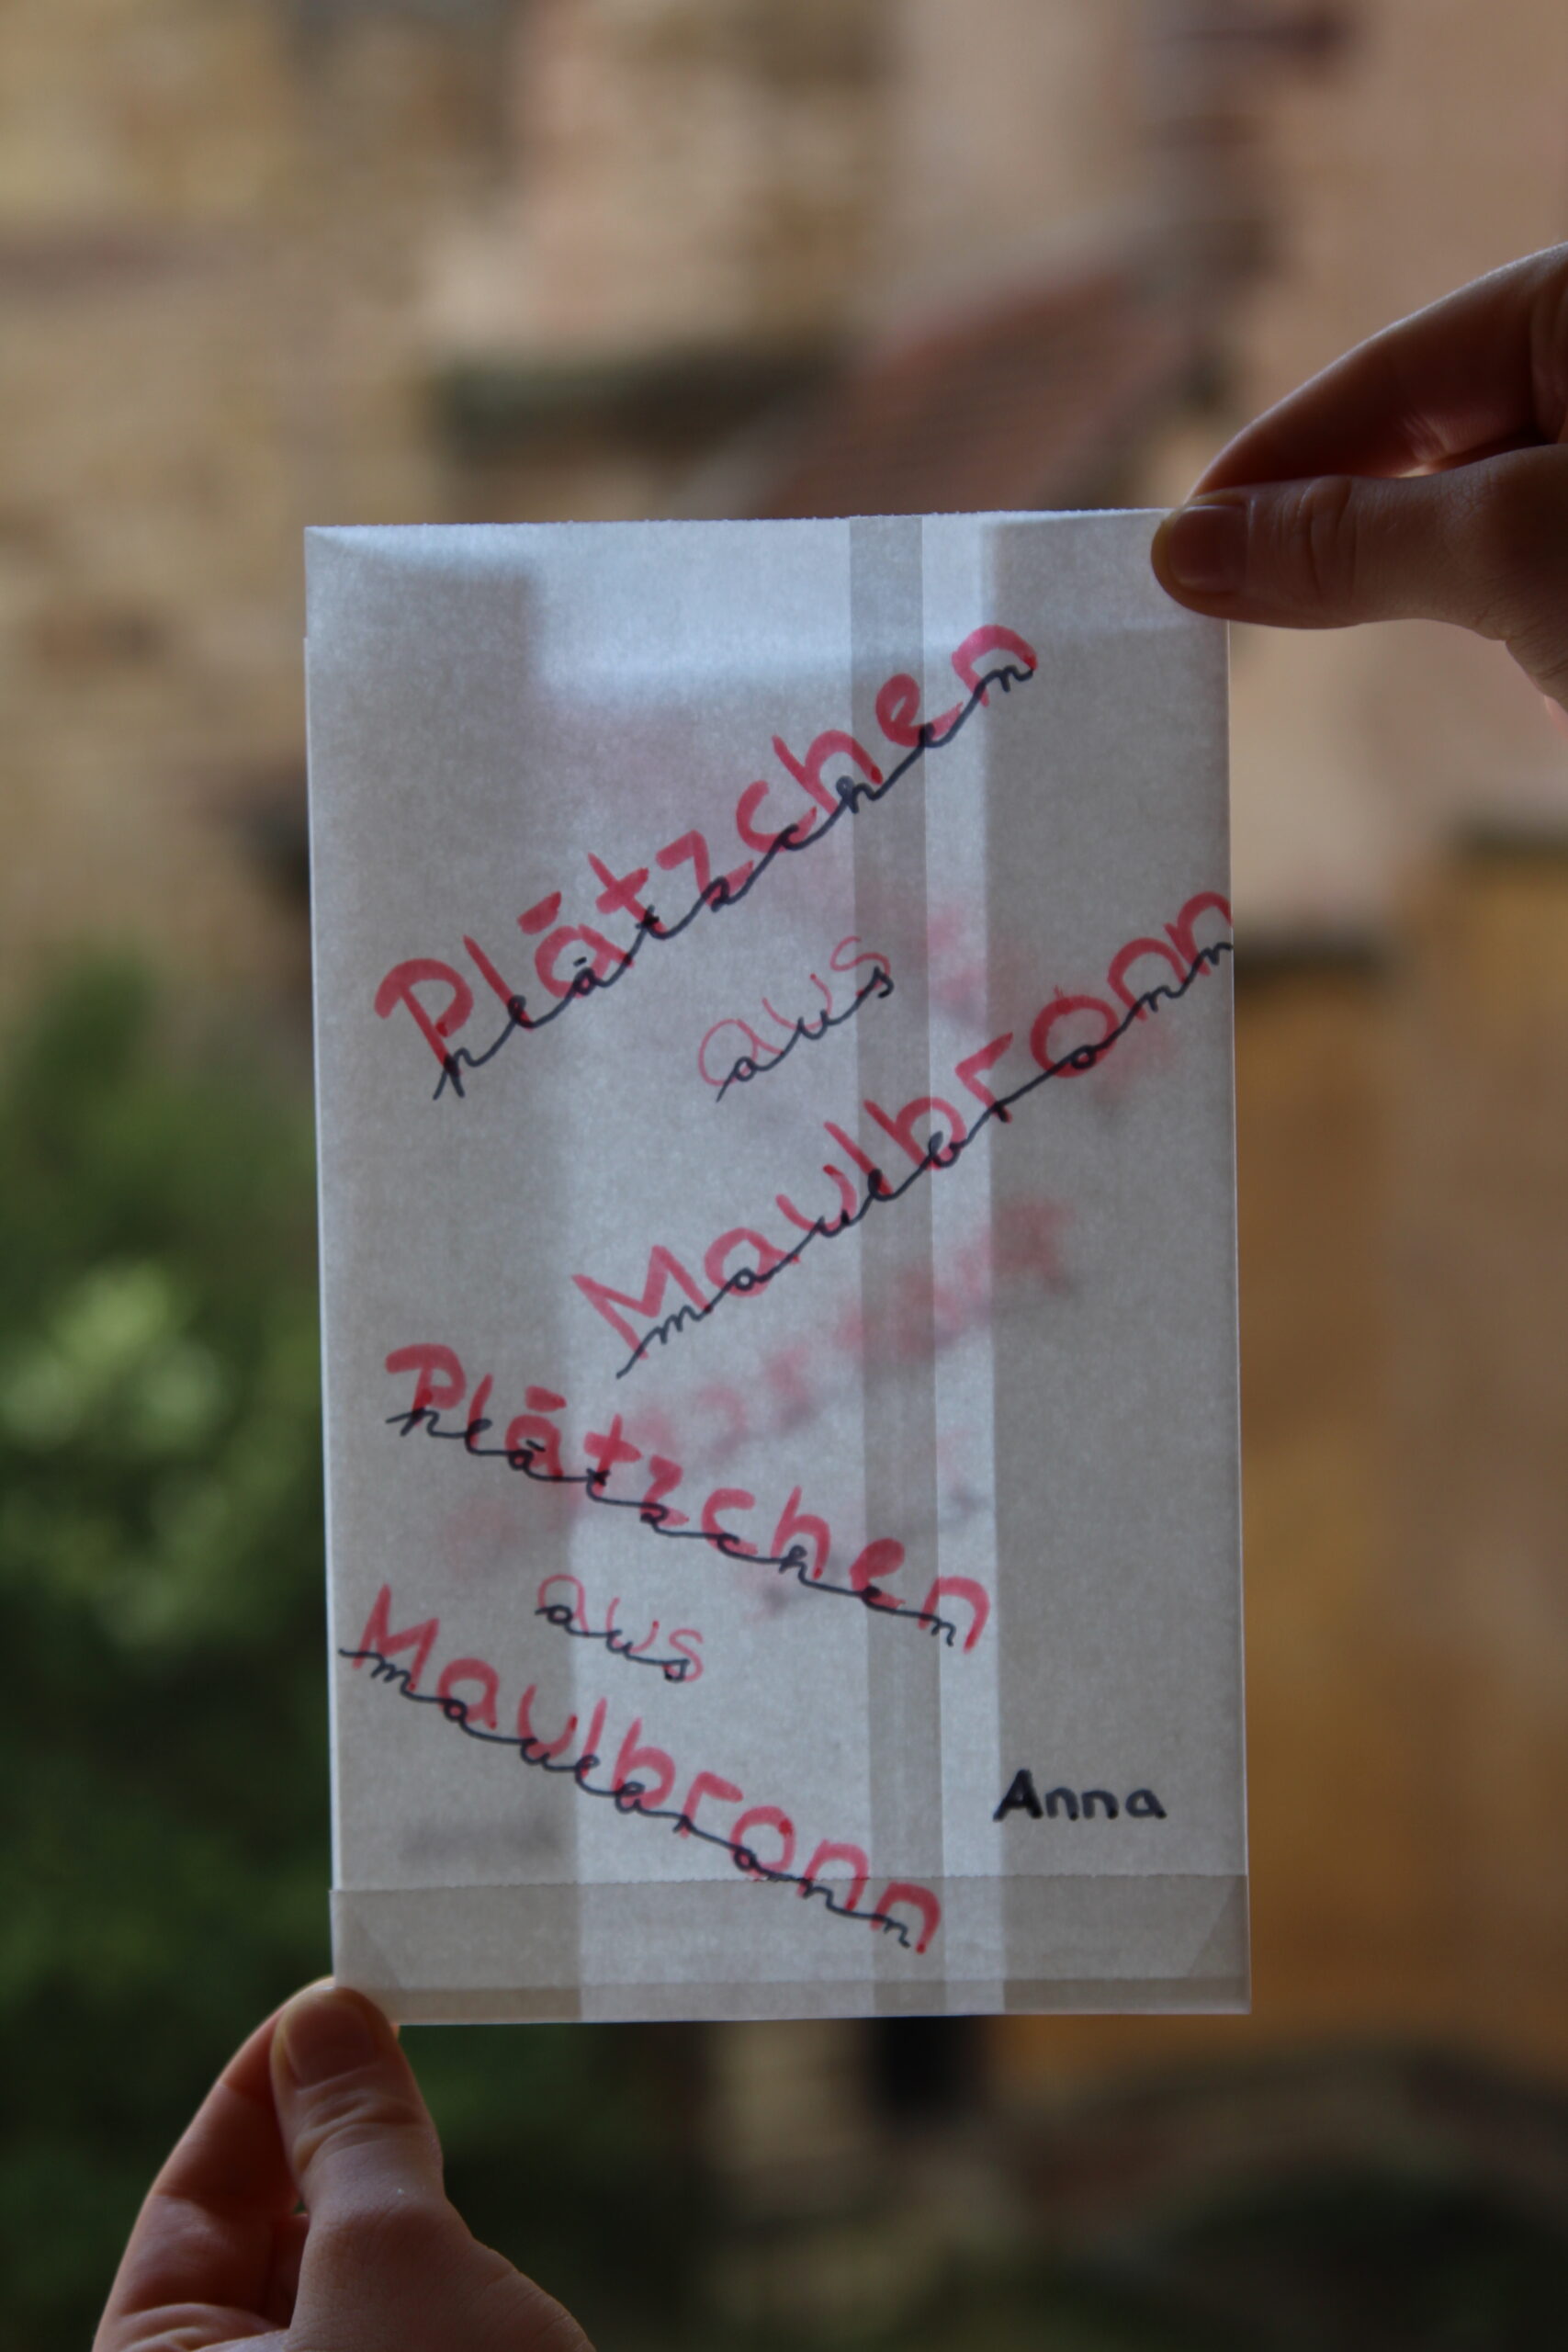 Plātzchen
plātzchen
aus
aus
Maulbronn
maulbronn
Plātzchen
plātzchen
aus
aus
Maulbronn
maulbronn
Anna